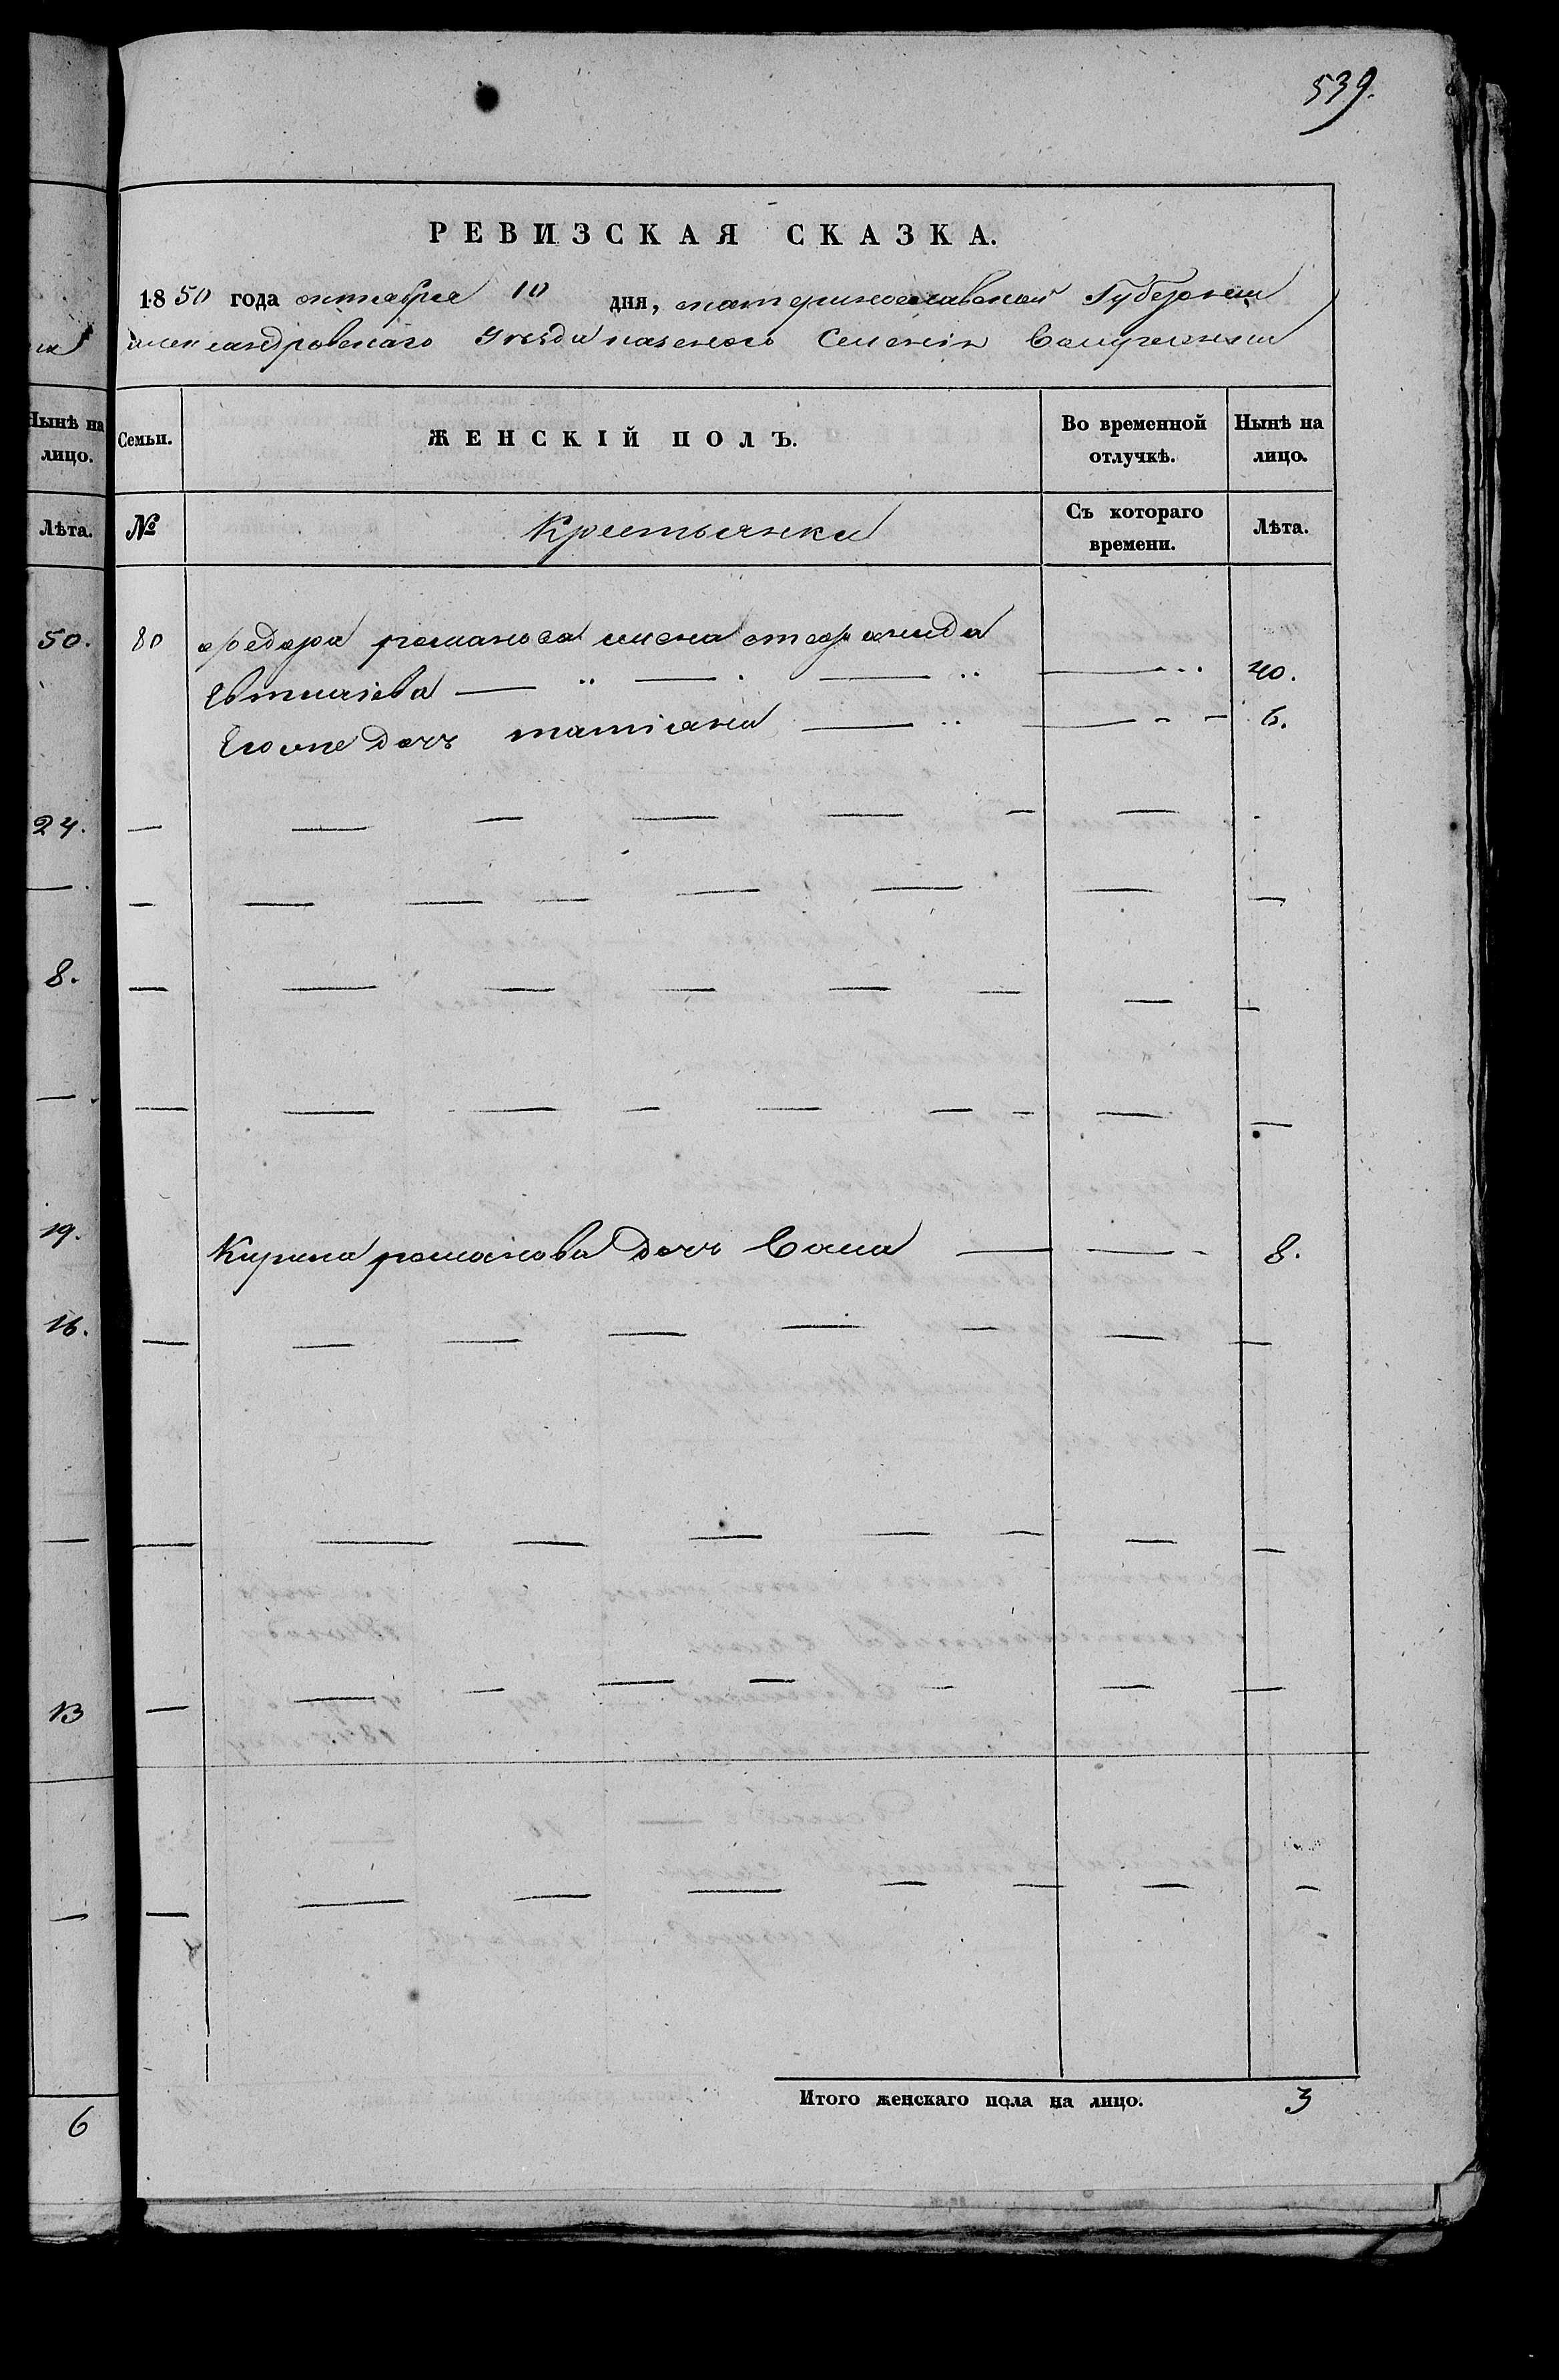 539.
РЕВИЗСКАЯ СКАЗКА.
1850 года октабря 10 дня, екатеринославской Губернии
александровскаго Уезда казеннаго Селения
Нынѣ на лицо.
Лѣта.
50.
24.
—
8.
—
19.
16.
—
13
—
6
Семьи. ЖЕНСКІЙ ПОЛЪ. Во временной отлучкѣ. Нынѣ на лицо.
№ Крестьянки Съ котораго времени. Лѣта.
80 федора романова жена
Евтиѣева — — — — 40.
Егоже дочь татіана — — 6.
Кирила романова дочь — — 8.
Итого женскаго пола на лицо. 3